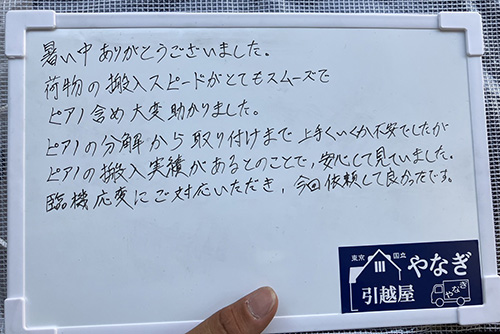 暑い中ありがとうございました。
荷物の搬入スピードがとてもスムーズで
ピアノ含め大変助かりました。
ピアノの分解から取り付けまで上手くいくか不安でしたが
ピアノの搬入実績があるとのことで、安心して見ていました。
臨機応変にご対応いただき、今回依頼して良かったです。
東京 国立
やなぎ
引越屋
やなぎ